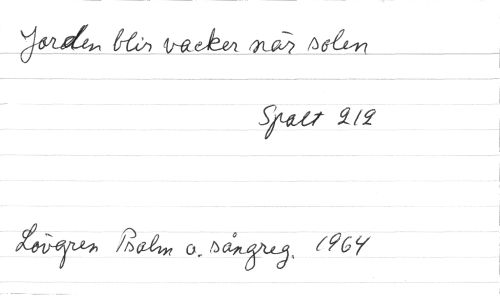 Jorden blir vacker när solen
Spalt 212
Lövgren Psalm o. sångreg. 1964